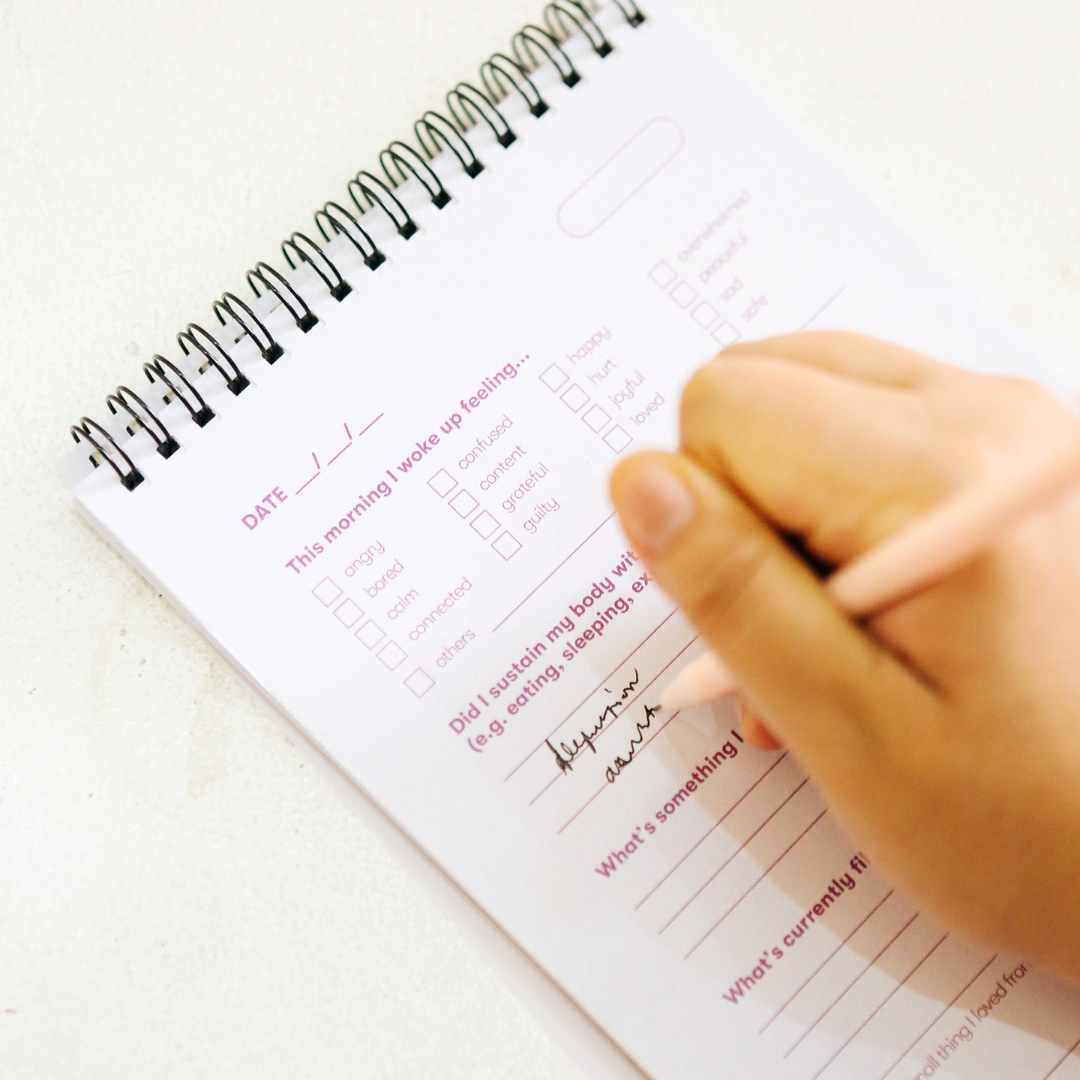 DATE __/__/__
This morning I woke up feeling...
angry
bored
calm
connected
others
confused
content
grateful
guilty
happy
hurt
joyful
loved
overwhelmed
peaceful
sad
safe
Did I sustain my body wit
(e.g. eating, sleeping, ex
What's something I
What's currently fi
thing I loved from